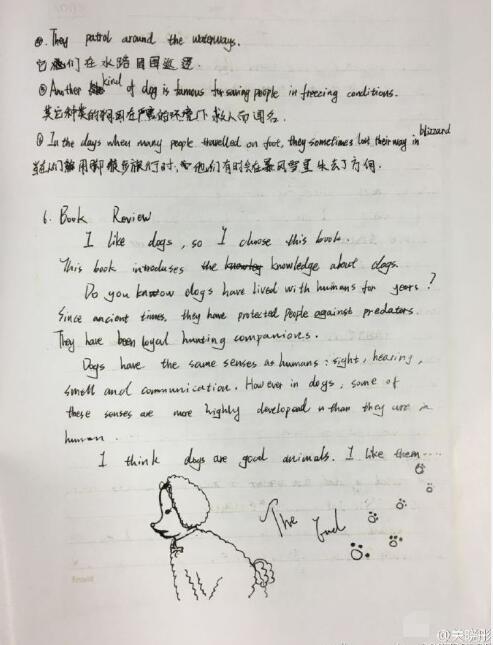 ⊕. They patrol around the waterways.
它们在水路周围巡逻
⊗ Another kind of dog is famous for saving people in freezing conditions.
其它种类的狗因在严寒的环境下救人而闻名.
⊕ In the days when many people travelled on foot, they sometimes lost their way in blizzard
当人们用脚步旅行时,他们有时会在暴风雪里失去了方向.
6. Book Review
I like dogs, so I choose this book.
This book introduses the knowledge about dogs.
Do you know dogs have lived with humans for years?
Since ancient times, they have protected people against predators.
They have been loyal hunting companions.
Dogs have the same senses as humans: sight, hearing,
smell and communication. However in dogs, some of
these senses are more highly developed than they are in
human.
I think dogs are good animals. I like them....
The End
@关晓彤